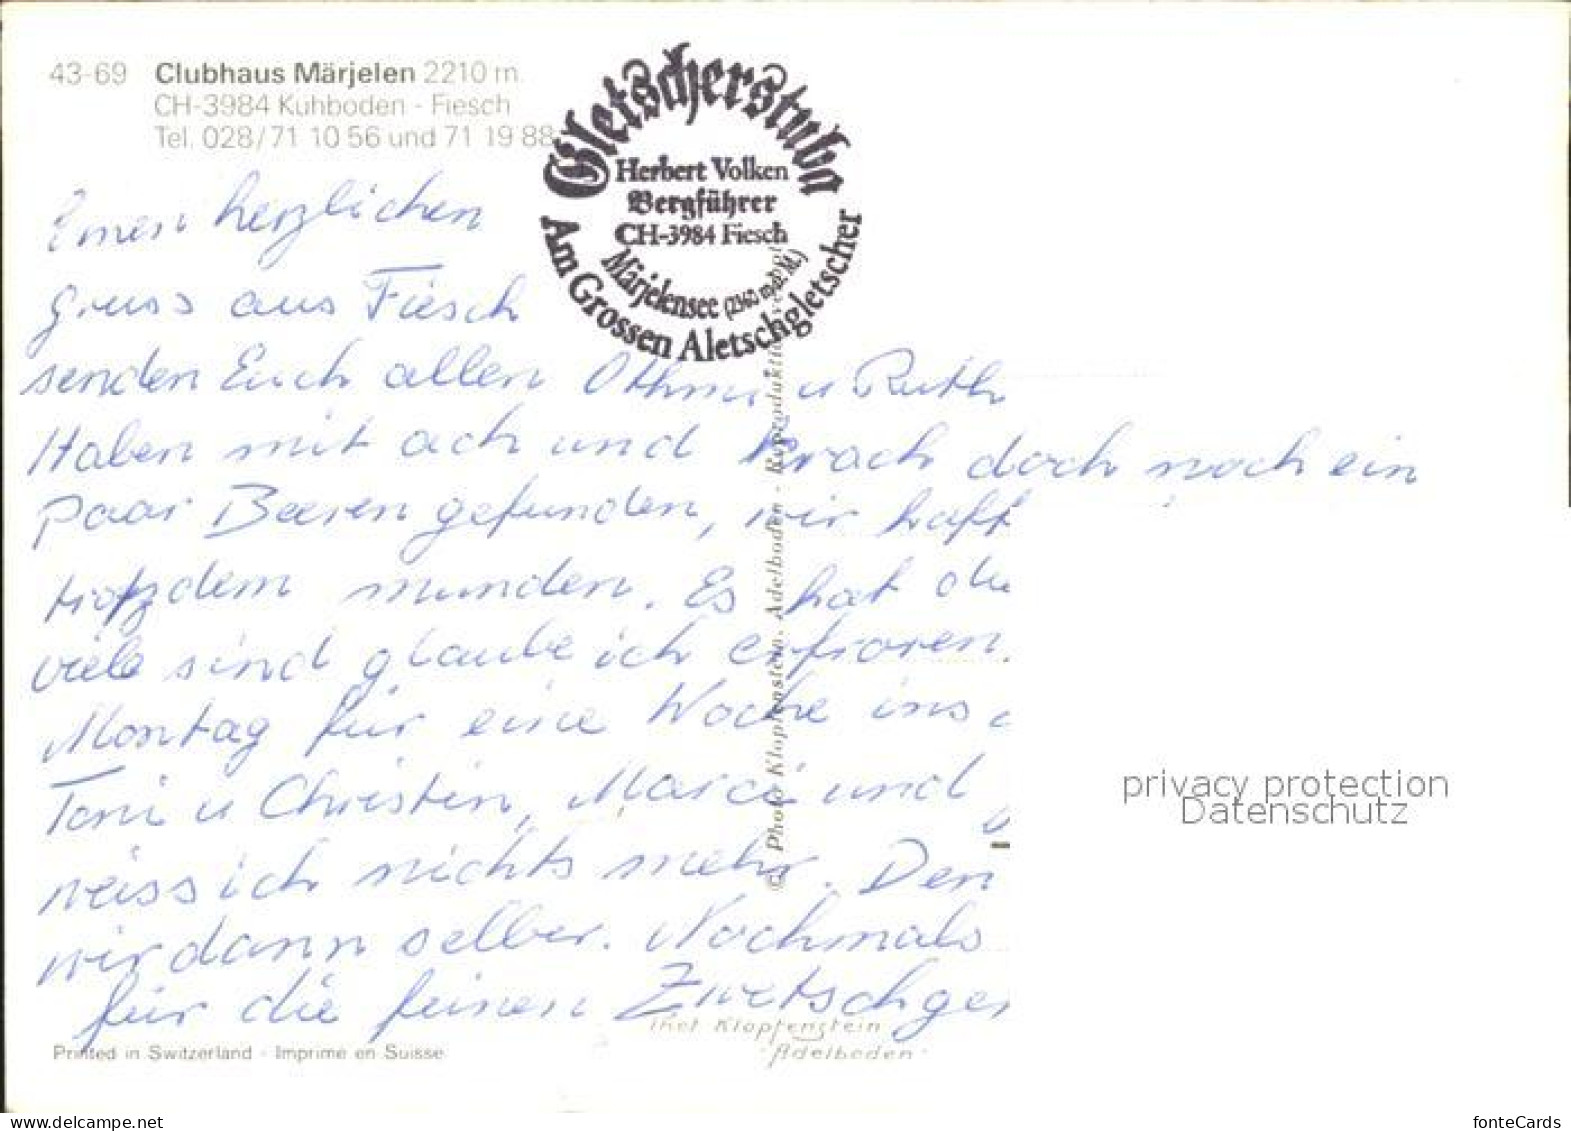 43-69 Clubhaus Märjelen 2210 m.
CH-3984 Kühboden - Fiesch
Tel. 028/71 10 56 und 71 19 88
Gletscherstuba
Herbert Volken
Bergführer
CH-3984 Fiesch
Märjelensee (2360 m.ü.M.)
Am Grossen Aletschgletscher
Einen herzlichen
Gruss aus Fiesch
senden Euch allen Othmar u Ruth
Haben mit ach und Krach doch noch ein
paar Beeren gefunden, wir
trotzdem munden. Es hat
viele sind glaube ich erfroren.
Montag für eine Woche ins
Toni u Christin, und
weiss ich nichts mehr. Den
wir dann selber. Nochmals
für die feinen Zwetschgen
© Photo Klopfenstein, Adelboden - Reproduktion
Phot Klopfenstein
Adelboden
Printed in Switzerland - Imprimé en Suisse
privacy protection
Datenschutz
www.delcampe.net
fonteCards